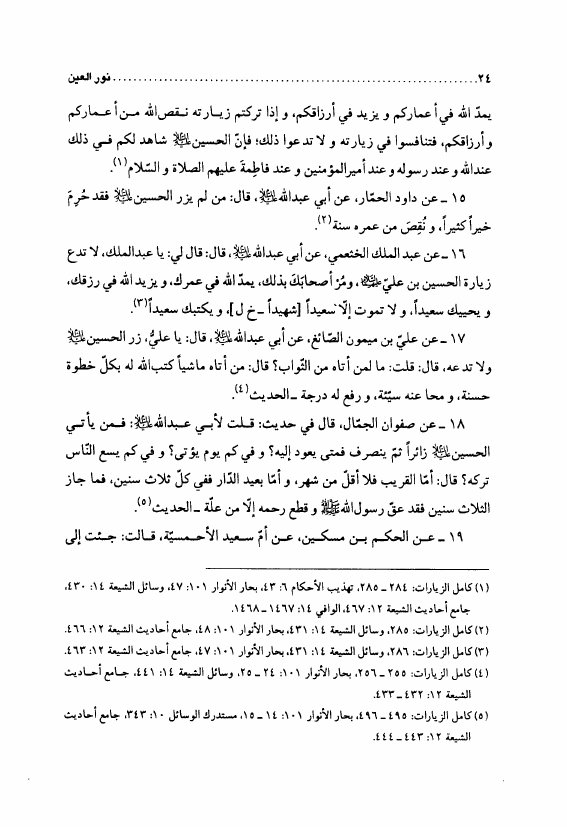 ٢٤ ................................................................ نور العين
يمدّ الله في أعماركم و يزيد في أرزاقكم، و إذا تركتم زيارته نقص الله من أعماركم
و أرزاقكم، فتنافسوا في زيارته و لا تدعوا ذلك؛ فإنّ الحسين عليه السلام شاهد لكم في ذلك
عند الله و عند رسوله و عند أمير المؤمنين و عند فاطمة عليهم الصلاة و السّلام(١).
١٥ ـ عن داود الحمّار، عن أبي عبدالله عليه السلام، قال: من لم يزر الحسين عليه السلام فقد حُرِمَ
خيراً كثيراً، و نُقِصَ من عمره سنة(٢).
١٦ ـ عن عبد الملك الخثعمي، عن أبي عبدالله عليه السلام، قال: قال لي: يا عبدالملك، لا تدع
زيارة الحسين بن عليّ عليه السلام، ومُرْ أصحابَكَ بذلك، يمدّ الله في عمرك، و يزيد الله في رزقك،
و يحييك سعيداً، و لا تموت إلّا سعيداً [شهيداً ـ خ ل]، و يكتبك سعيداً(٣).
١٧ ـ عن عليّ بن ميمون الصّائغ، عن أبي عبدالله عليه السلام، قال: يا عليُّ، زر الحسين عليه السلام
ولا تدعه، قال: قلت: ما لمن أتاه من الثّواب؟ قال: من أتاه ماشياً كتب الله له بكلّ خطوة
حسنة، و محا عنه سيّئة، و رفع له درجة ـ الحديث(٤).
١٨ ـ عن صفوان الجمّال، قال في حديث: قلت لأبي عبدالله عليه السلام: فمن يأتي
الحسين عليه السلام زائراً ثمّ ينصرف فمتى يعود إليه؟ و في كم يوم يؤتى؟ و في كم يسع النّاس
تركه؟ قال: أمّا القريب فلا أقلّ من شهر، و أمّا بعيد الدّار ففي كلّ ثلاث سنين، فما جاز
الثلاث سنين فقد عقّ رسول الله ﷺ و قطع رحمه إلّا من علّة ـ الحديث(٥).
١٩ ـ عن الحكم بن مسكين، عن أمّ سعيد الأحمسيّة، قالت: جئت إلى
(١) كامل الزيارات: ٢٨٤ ـ ٢٨٥، تهذيب الأحكام ٦: ٤٣، بحار الأنوار ١٠١: ٤٧، وسائل الشيعة ١٤: ٤٣٠،
جامع أحاديث الشيعة ١٢: ٤٦٧، الوافي ١٤: ١٤٦٧ ـ ١٤٦٨.
(٢) كامل الزيارات: ٢٨٥، وسائل الشيعة ١٤: ٤٣١، بحار الأنوار ١٠١: ٤٨، جامع أحاديث الشيعة ١٢: ٤٦٦.
(٣) كامل الزيارات: ٢٨٦، وسائل الشيعة ١٤: ٤٣١، بحار الأنوار ١٠١: ٤٧، جامع أحاديث الشيعة ١٢: ٤٦٣.
(٤) كامل الزيارات: ٢٥٥ ـ ٢٥٦، بحار الأنوار ١٠١: ٢٤ ـ ٢٥، وسائل الشيعة ١٤: ٤٤١، جامع أحاديث
الشيعة ١٢: ٤٣٢ ـ ٤٣٣.
(٥) كامل الزيارات: ٤٩٥ ـ ٤٩٦، بحار الأنوار ١٠١: ١٤ ـ ١٥، مستدرك الوسائل ١٠: ٣٤٣، جامع أحاديث
الشيعة ١٢: ٤٤٣ ـ ٤٤٤.